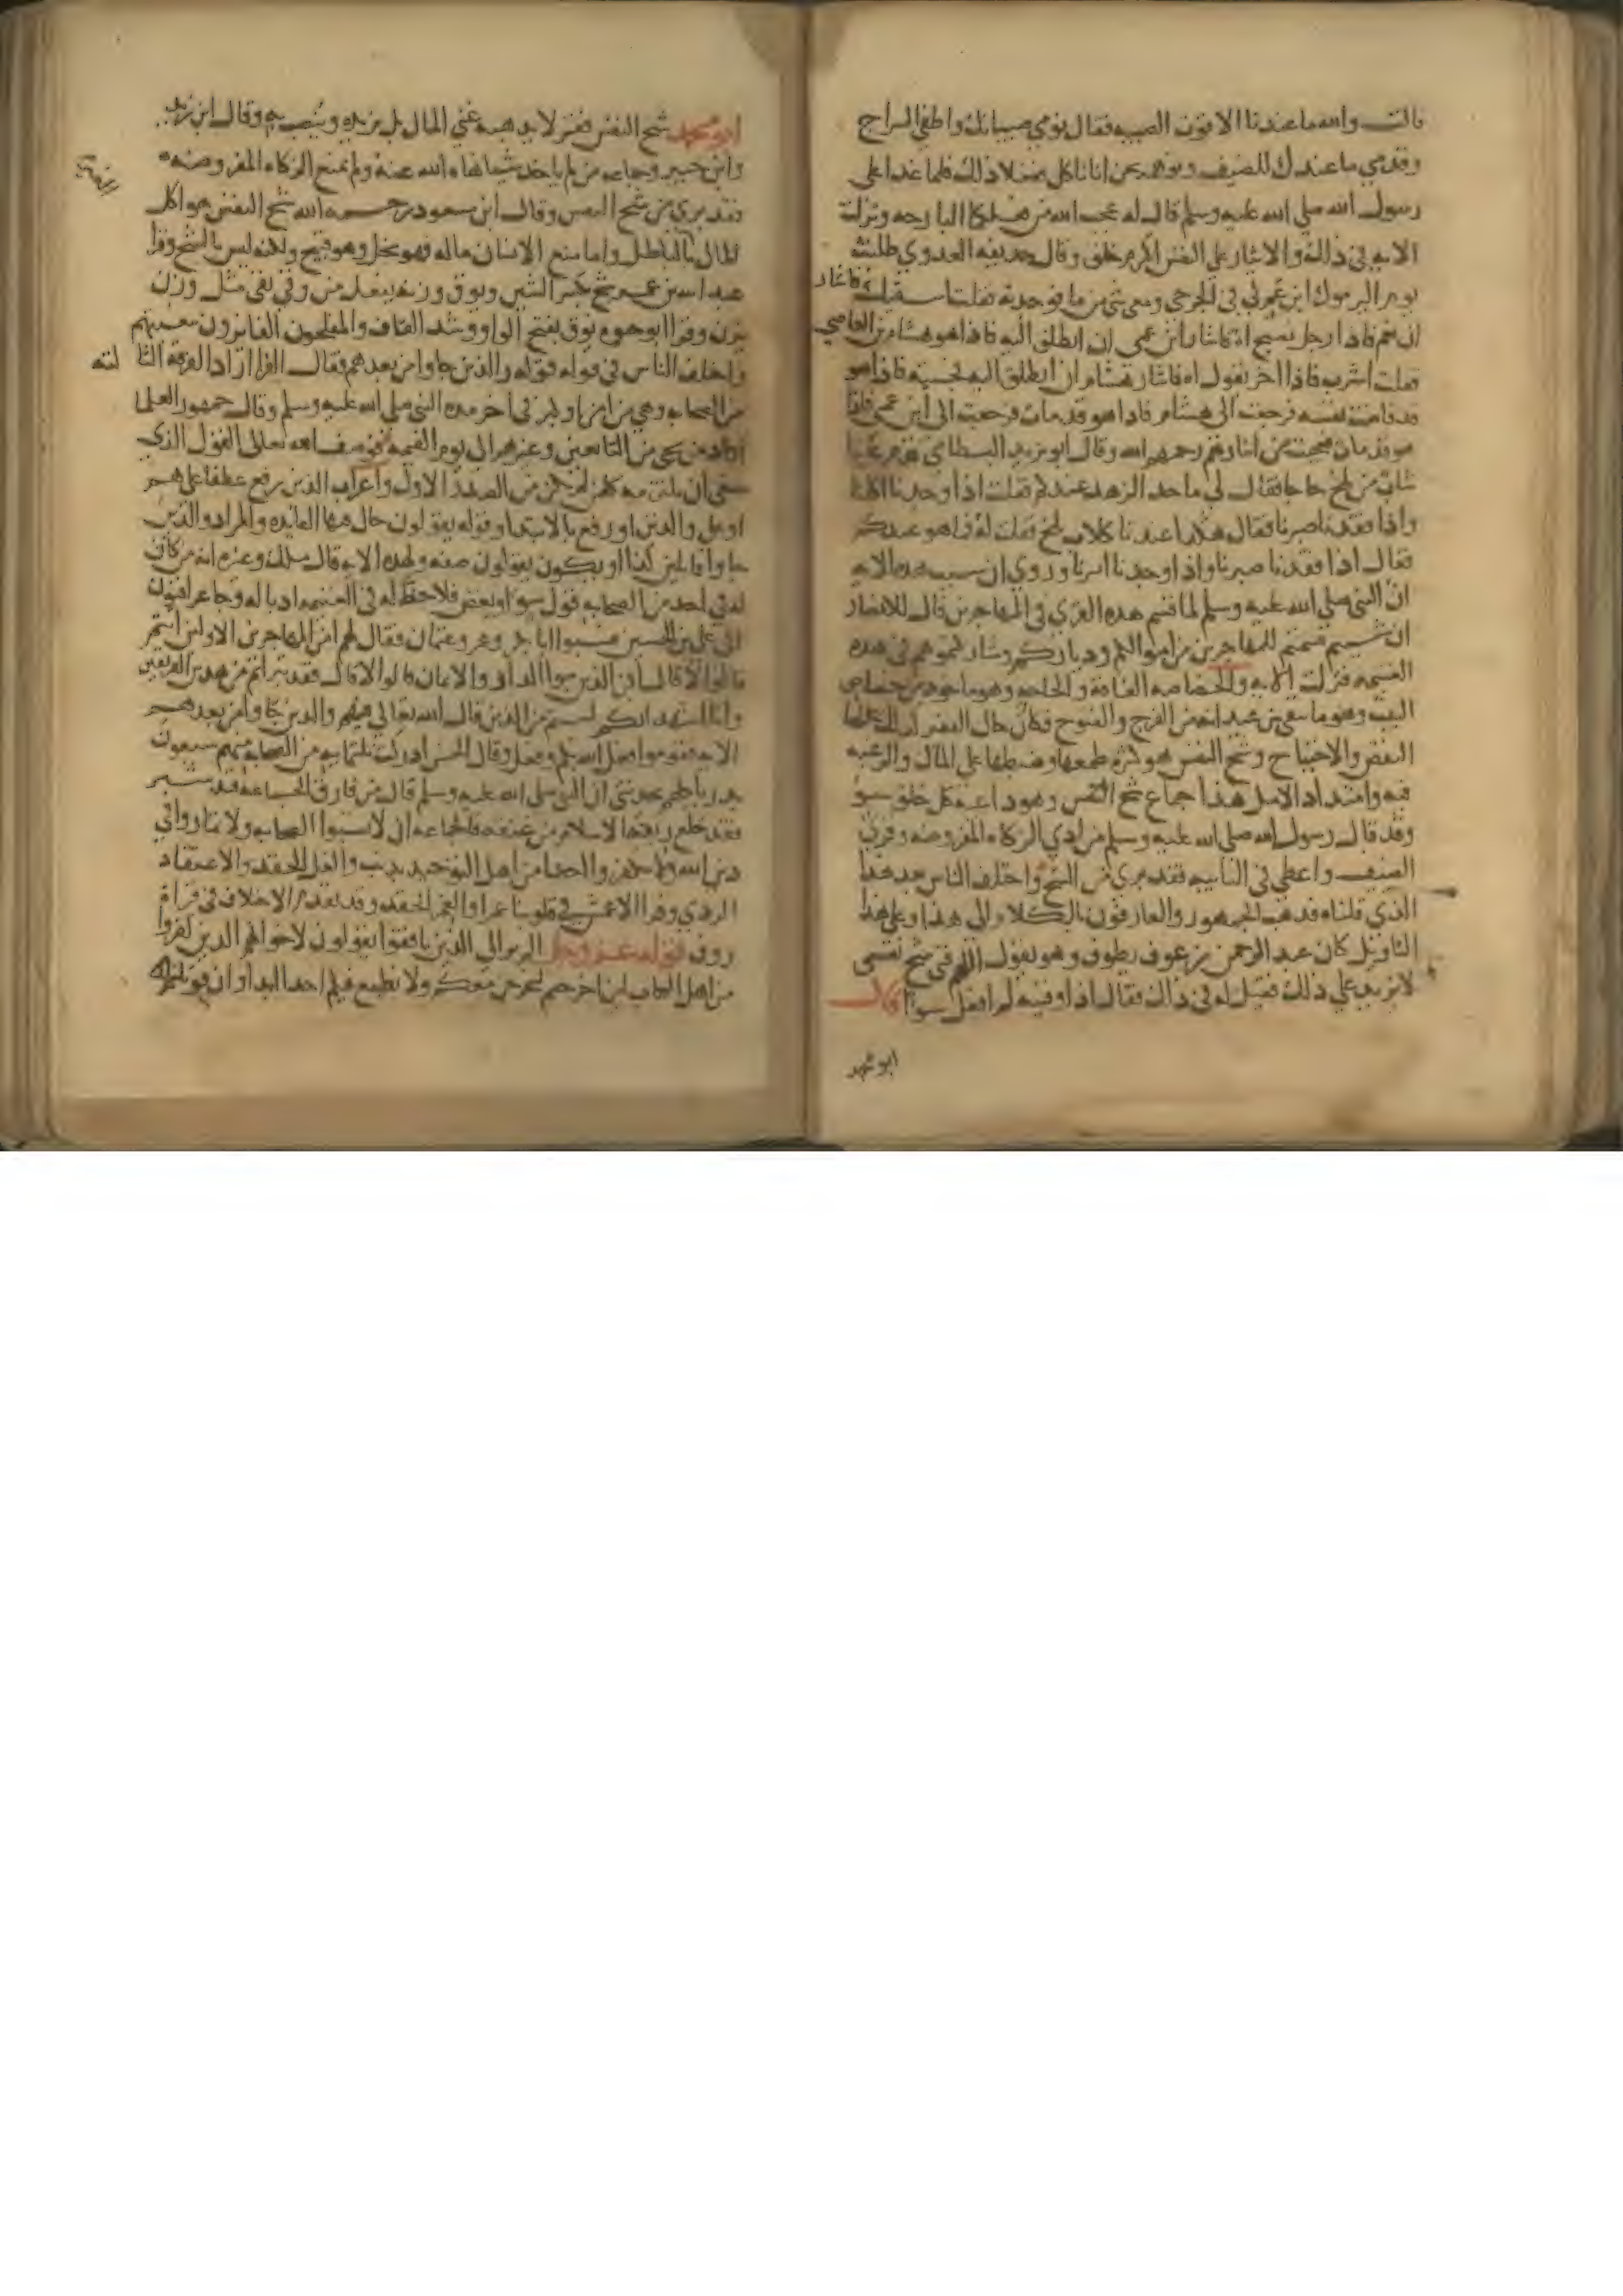 قالت والله ما عندنا الا قوت الصبيه فقال نومي صبيانك واطفي السراج
وقدمي ما عندك للضيف ونوهمه بحن انا ناكل ففعلا ذلك فلما غدا على
رسول الله صلي الله عليه وسلم قال له عجب الله من فعلكما البارحه ونزلت
الايه في ذلك والايثار على النفس اكرم خلق وقال حذيفه العدوي طلبت
يوم اليرموك ابن عم لي في الجرحي ومعي شي من ما فوجدته فقلت اسقيك فاشار
ان نعم فاذا رجل يصيح اه فاشار ابن عمي ان انطلق اليه فاذا هو هشام بن العاصي
فقلت اشرب فاذا اخر يقول اه فاشار هشام ان انطلق اليه فجيته فاذا هو
قد فاضت نفسه فرجعت الى هشام فاذا هو قد مات فرجعت الى ابن عمي فاذا
هو قد مات فعجبت من ايثارهم رحمهم الله وقال ابو يزيد البسطامي قدم علينا
شاب من بلخ حاجا فقال لي ما حد الزهد عندكم فقلت اذا وجدنا اكلنا
واذا فقدنا صبرنا فقال هكذا عندنا كلاب بلخ فقلت له فما هو عندكم
فقال اذا فقدنا صبرنا واذا وجدنا اثرنا وروي ان سبب هذه الايه
ان النبي صلي الله عليه وسلم لما قسم هذه القرى في المهاجرين قال للانصار
ان شيتم قسمتم للمهاجرين من اموالكم ودياركم وشاركتموهم في هذه
القسمه فنزلت الايه والخصاصه الفاقه والحاجه وهو ماخوذ من خصاص
البيت وهو ما يبقي بين عيدانه من الفرج والفتوح فكان حال الفقر
النقص والاحتياج وشح النفس هو كثره طمعها وضبطها على المال والرغبه
فيه وامتداد الامل هذا جماع شح النفس وهو داعيه كل خلق سو
وقد قال رسول الله صلي الله عليه وسلم من ادي الزكاه المفروضه وقري
الضيف واعطي في النايبه فقد بري من الشح واختلف الناس بعد هذا
الذي قلناه فذهب الجمهور والعارفون بالكلام الى هذا وعلى هذا
التاويل كان عبد الرحمن بن عوف يطوف وهو يقول اللهم قني شح نفسي
لا يزيد على ذلك فقيل له في ذلك فقال اذا وقيته لم افعل سوا قال
ابو محمد
ابو محمد شح النفس فقر لا يذهبه غني المال بل يزيده وينصب به وقال ابن زيد
وابن جبير وجماعه من لم ياخذ شيا نهاه الله عنه ولم يمنع الزكاه المفروضه
فقد بري من شح النفس وقال ابن مسعود رحمه الله شح النفس هو اكل
المال بالباطل واما منع الانسان ماله فهو بخل وهو قبيح ولكنه ليس بالشح وقرا
عبد الله بن عمر شح بكسر الشين ويوق وزنه يفعل من وقي يقي مثل وزن
يزن وقرا ابو حيوه يوق بفتح الواو وشد القاف والمفلحون الفايزون ببغيتهم
واختلف الناس في قوله والذين جاوا من بعدهم فقال الفرا اراد الفرقه الثا لثه
من الصحابه وهي من امن او كبر في اخر مده النبي صلي الله عليه وسلم وقال جمهور العلما
اراد من يجي من التابعين وغيرهم الى يوم القيمه فوصف الله تعالى القول الذي
ينبغي ان يلتزمه كل من لم يكن من الصدر الاول واعراب الذين رفع عطفا على هم
او على والذين او رفع بالابتدا وقوله يقولون حال فيها الفايده والمراد والذين
جاوا قايلين كذا او يكون يقولون صفه ولهذه الايه قال مالك وغيره انه من كان
له في احد من الصحابه قول سو او بغض فلا حظ له في الغنيمه ادبا له وجا عراقيون
الى علي بن الحسين فسبوا ابا بكر وعمر وعثمان فقال لهم امن المهاجرين الاولين انتم
قالوا لا قال افمن الذين تبوا الدار والايمان قالوا لا قال فقد تبراتم من هذين الفريقين
وانا اشهد انكم لستم من الذين قال الله تعالي فيهم والذين جاوا من بعدهم
الايه فقوموا فعل الله بكم وفعل وقال الحسن ادركت ثلثمايه من الصحابه منهم سبعون
بدريا كلهم يحدثني ان النبي صلى الله عليه وسلم قال من فارق الجماعه قيد شبر
فقد خلع ربقه الاسلام من عنقه فالجماعه ان لا تسبوا الصحابه ولا تماروا في
دين الله ولا تكفروا احدا من اهل التوحيد بذنب والغل الحقد والاعتقاد
الردي وقرا الاعمش في قلوبنا غمرا والغمر الحقد وقد تقدم الاختلاف في قراة
روف قوله عز وجل الم تر الي الذين نافقوا يقولون لاخوانهم الذين كفروا
من اهل الكتاب لين اخرجتم لنخرجن معكم ولا نطيع فيكم احدا ابدا وان قوتلتم